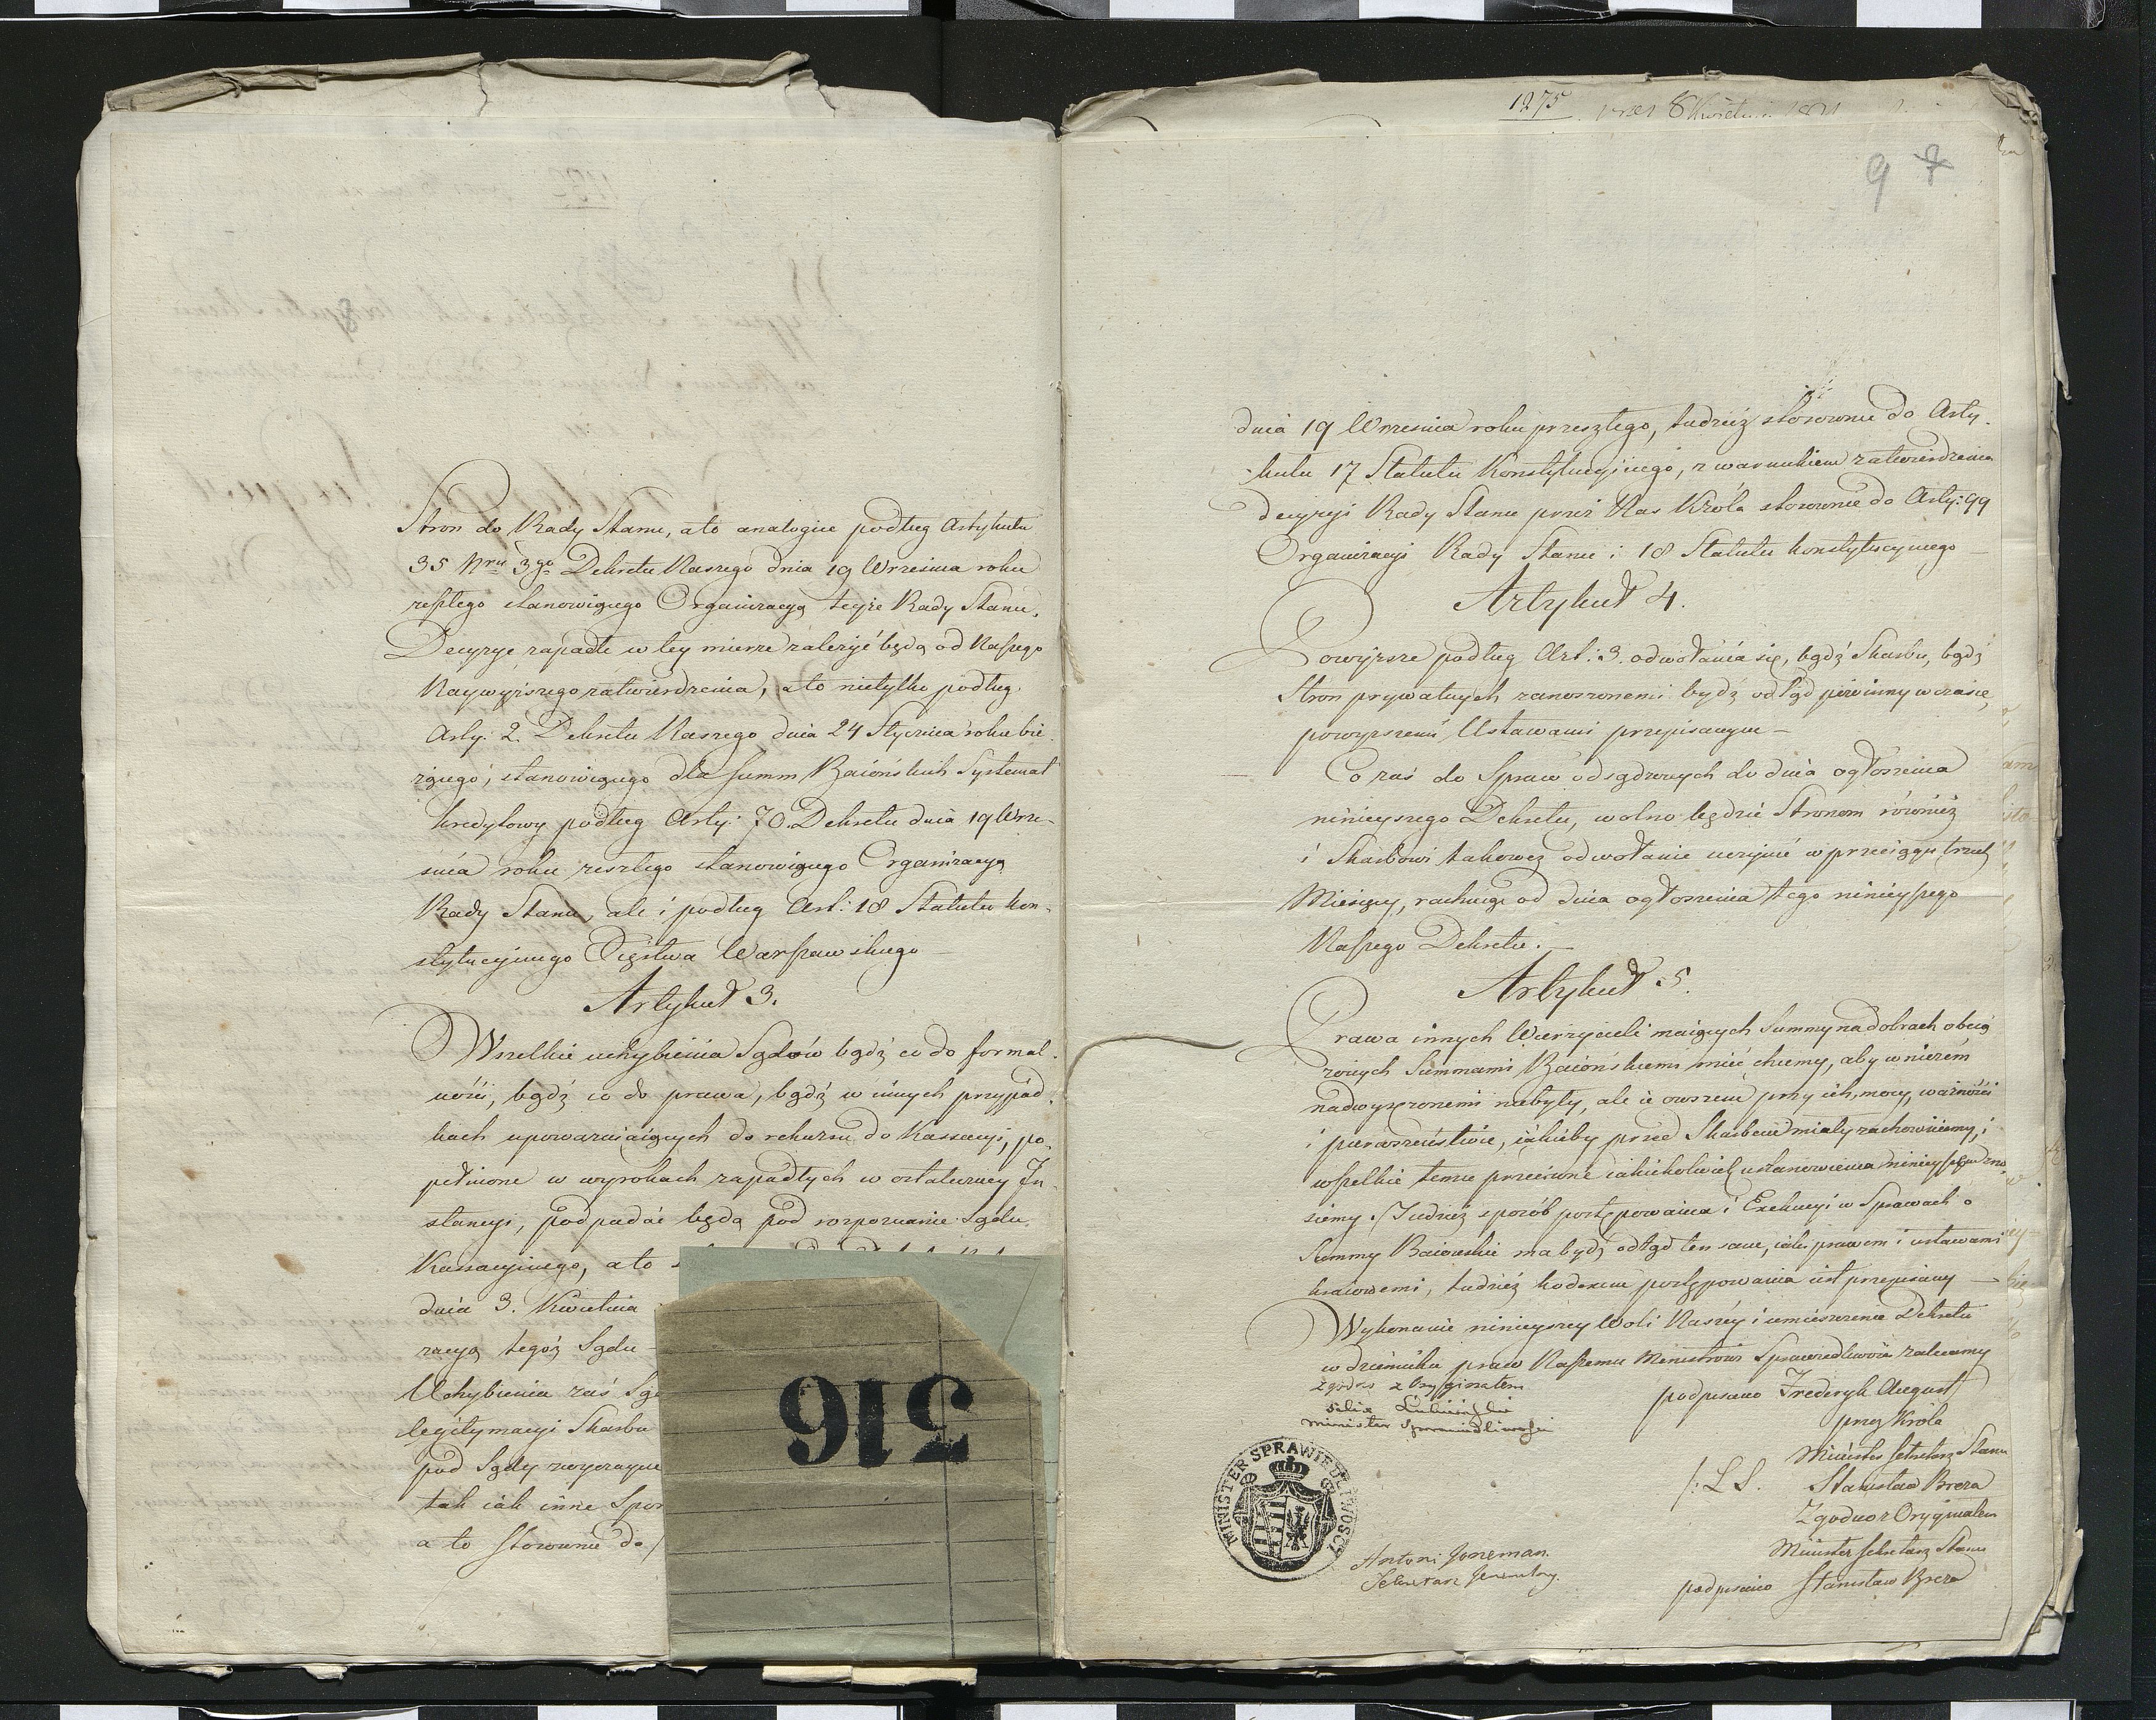 Stron do Rady Stanu, a to analogice podług Artykułu
35 Nru 3go Dekretu Naszego dnia 19 Września roku
zeszłego stanowiącego Organizacyą teyże Rady Stanu.
Decyzye zapadłe w tey mierze zależyć będą od Naszego
Naywyższego zatwierdzenia, a to nietylko podług
Arty: 2. Dekretu Naszego dnia 24 Stycznia roku bie
żącego, stanowiącego dla Summ Baiońskich Systemat
kredytowy podług Arty: 70. Dekretu dnia 19 Wrze-
śnia roku zeszłego stanowiącego Organizacyą
Rady Stanu, ale i podług Art: 18 Statutu kon-
stytucyinego Xięstwa Warszawskiego —
Artykuł 3.
Wszelkie uchybienia Sądów bądź co do formal-
ności, bądź co do prawa, bądź w innych przypad-
kach upoważniaiących do rekursu do Kassacyi, po-
pełnione w wyrokach zapadłych w ostateczney In-
stancyi, podpadać będą pod rozpoznanie Sądu
Kassacyinego, a to
dnia 3. Kwietnia
zacyą tegóż Sądu —
Uchybienia zaś Są
legitymacyi Skarbu
pod Sądy zwyczayne
tak iak inne Spor
a to stosownie do
516
1275
8 Kwietnia 1811
9 7
8
dnia 19 Września roku przeszłego, tudzież stosownie do Arty-
kułu 17 Statutu Konstytucyinego, z warunkiem zatwierdzenia
decyzyi Rady Stanu przez Nas Króla stosownie do Arty: 99
Organizacyi Rady Stanu i 18 Statutu konstytucyinego —
Artykuł 4.
Powyższe podług Art: 3. odwołania się, bądź Skarbu, bądź
Stron prywatnych zanoszonemi bydź odtąd powinny w czasie,
powyższemi Ustawami przepisanym —
Co zaś do Spraw odsądzonych do dnia ogłoszenia
ninieyszego Dekretu, wolno będzie Stronom również
i Skarbowi takoweż odwołanie uczynić w przeciągu trzech
Miesięcy, rachuiąc od dnia ogłoszenia tego ninieyszego
Naszego Dekretu. —
Artykuł 5.
Prawa innych Wierzycieli maiących Summy na dobrach obcią
żonych Summami Baiońskiemi mieć chcemy, aby w niczém
nadwyrężonemi niebyły, ale ie owszem przy ich mocy, ważności
i pierwszeństwie, iakieby przed Skarbem miały zachowuiemy, i
wszelkie temu przeciwne iakiekolwiek ustanowienia ninieyszém zno-
siemy. Tudzież sposób postępowania i Exekucyi w Sprawach o
Summy Baiońskie ma bydź odtąd ten sam, iaki prawem i ustawami
kraiowemi, tudzież kodexem postępowania iest przepisany —
Wykonanie ninieyszey Woli Naszéy i umieszczenie Dekretu
w dzienniku praw Naszemu Ministrowi Sprawiedliwości zalecamy
podpisano Frederyk August
przez Króla
Minister Sekretarz Stanu
/: L S. Stanisław Breza
Zgodno z Oryginałem
Minister Sekretarz Stanu
podpisano Stanisław Breza
Zgodno z Oryginałem
Felix Łubieński
Minister Sprawiedliwości
MINISTER SPRAWIEDLIWOSCI
Antoni Joneman.
Sekretarz Generalny.